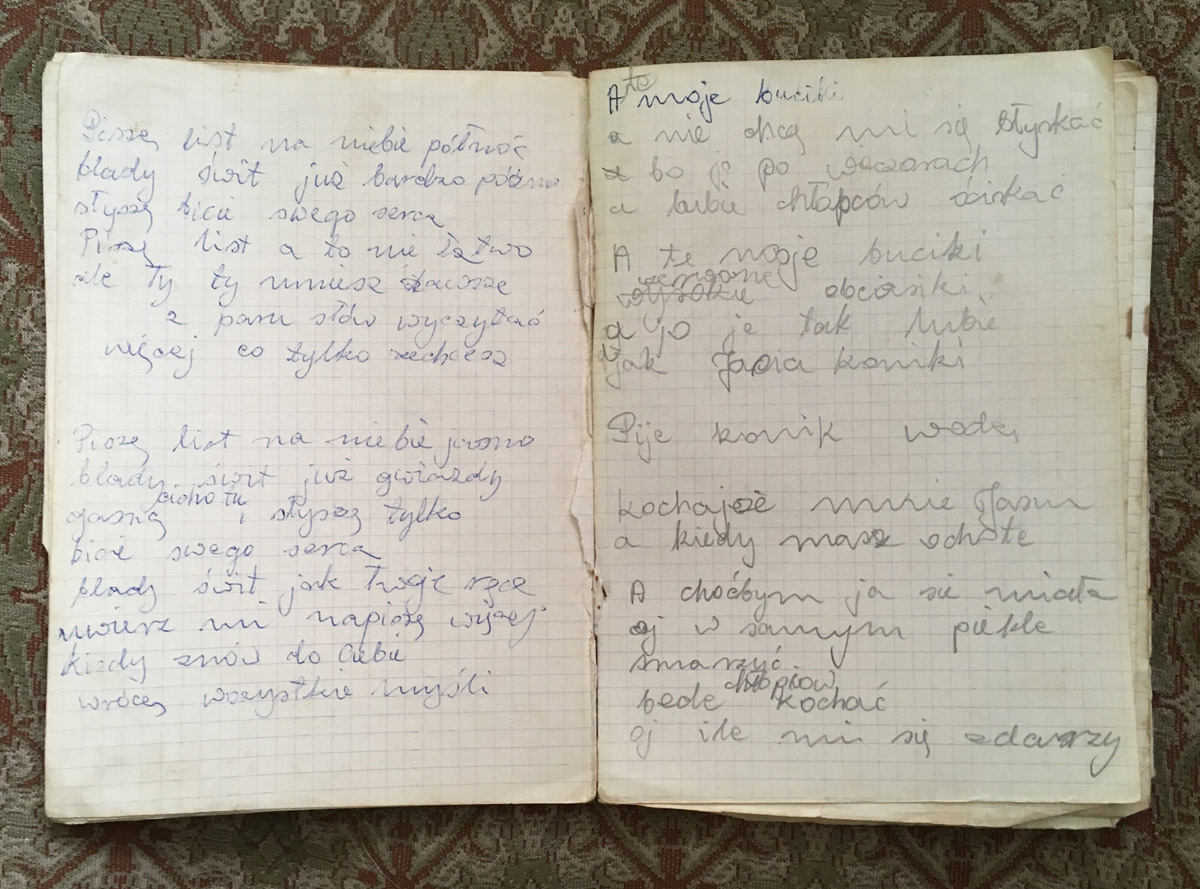 Piszę list na niebie północ
blady świt już bardzo późno
słyszę bicie swego serca
Piszę list a to nie łatwo
ale Ty ty umiesz zawsze
z paru słów wyczytać
więcej co tylko zechcesz
Piszę list na niebie jasno
blady świt już gwiazdy
cicho tu
gasną i słyszę tylko
bicie swego serca
blady świt jak twoje ręce
uwierz mi napiszę więcej
kiedy znów do Ciebie
wrócą wszystkie myśli
A te moje buciki
a nie chcą mi się błyskać
bo ja po wieczorach
a lubie chłopców ściskać
A te moje buciki
wysokie obcasiki
a jo je tak lubie
jak Jasia koniki
Pije konik wodę
kochajże mnie Jasiu
a kiedy masz ochote
A choćbym ja sie miała
oj w samym piekle
smarzyć
chłopców
bede kochać
oj ile mi się zdarzy